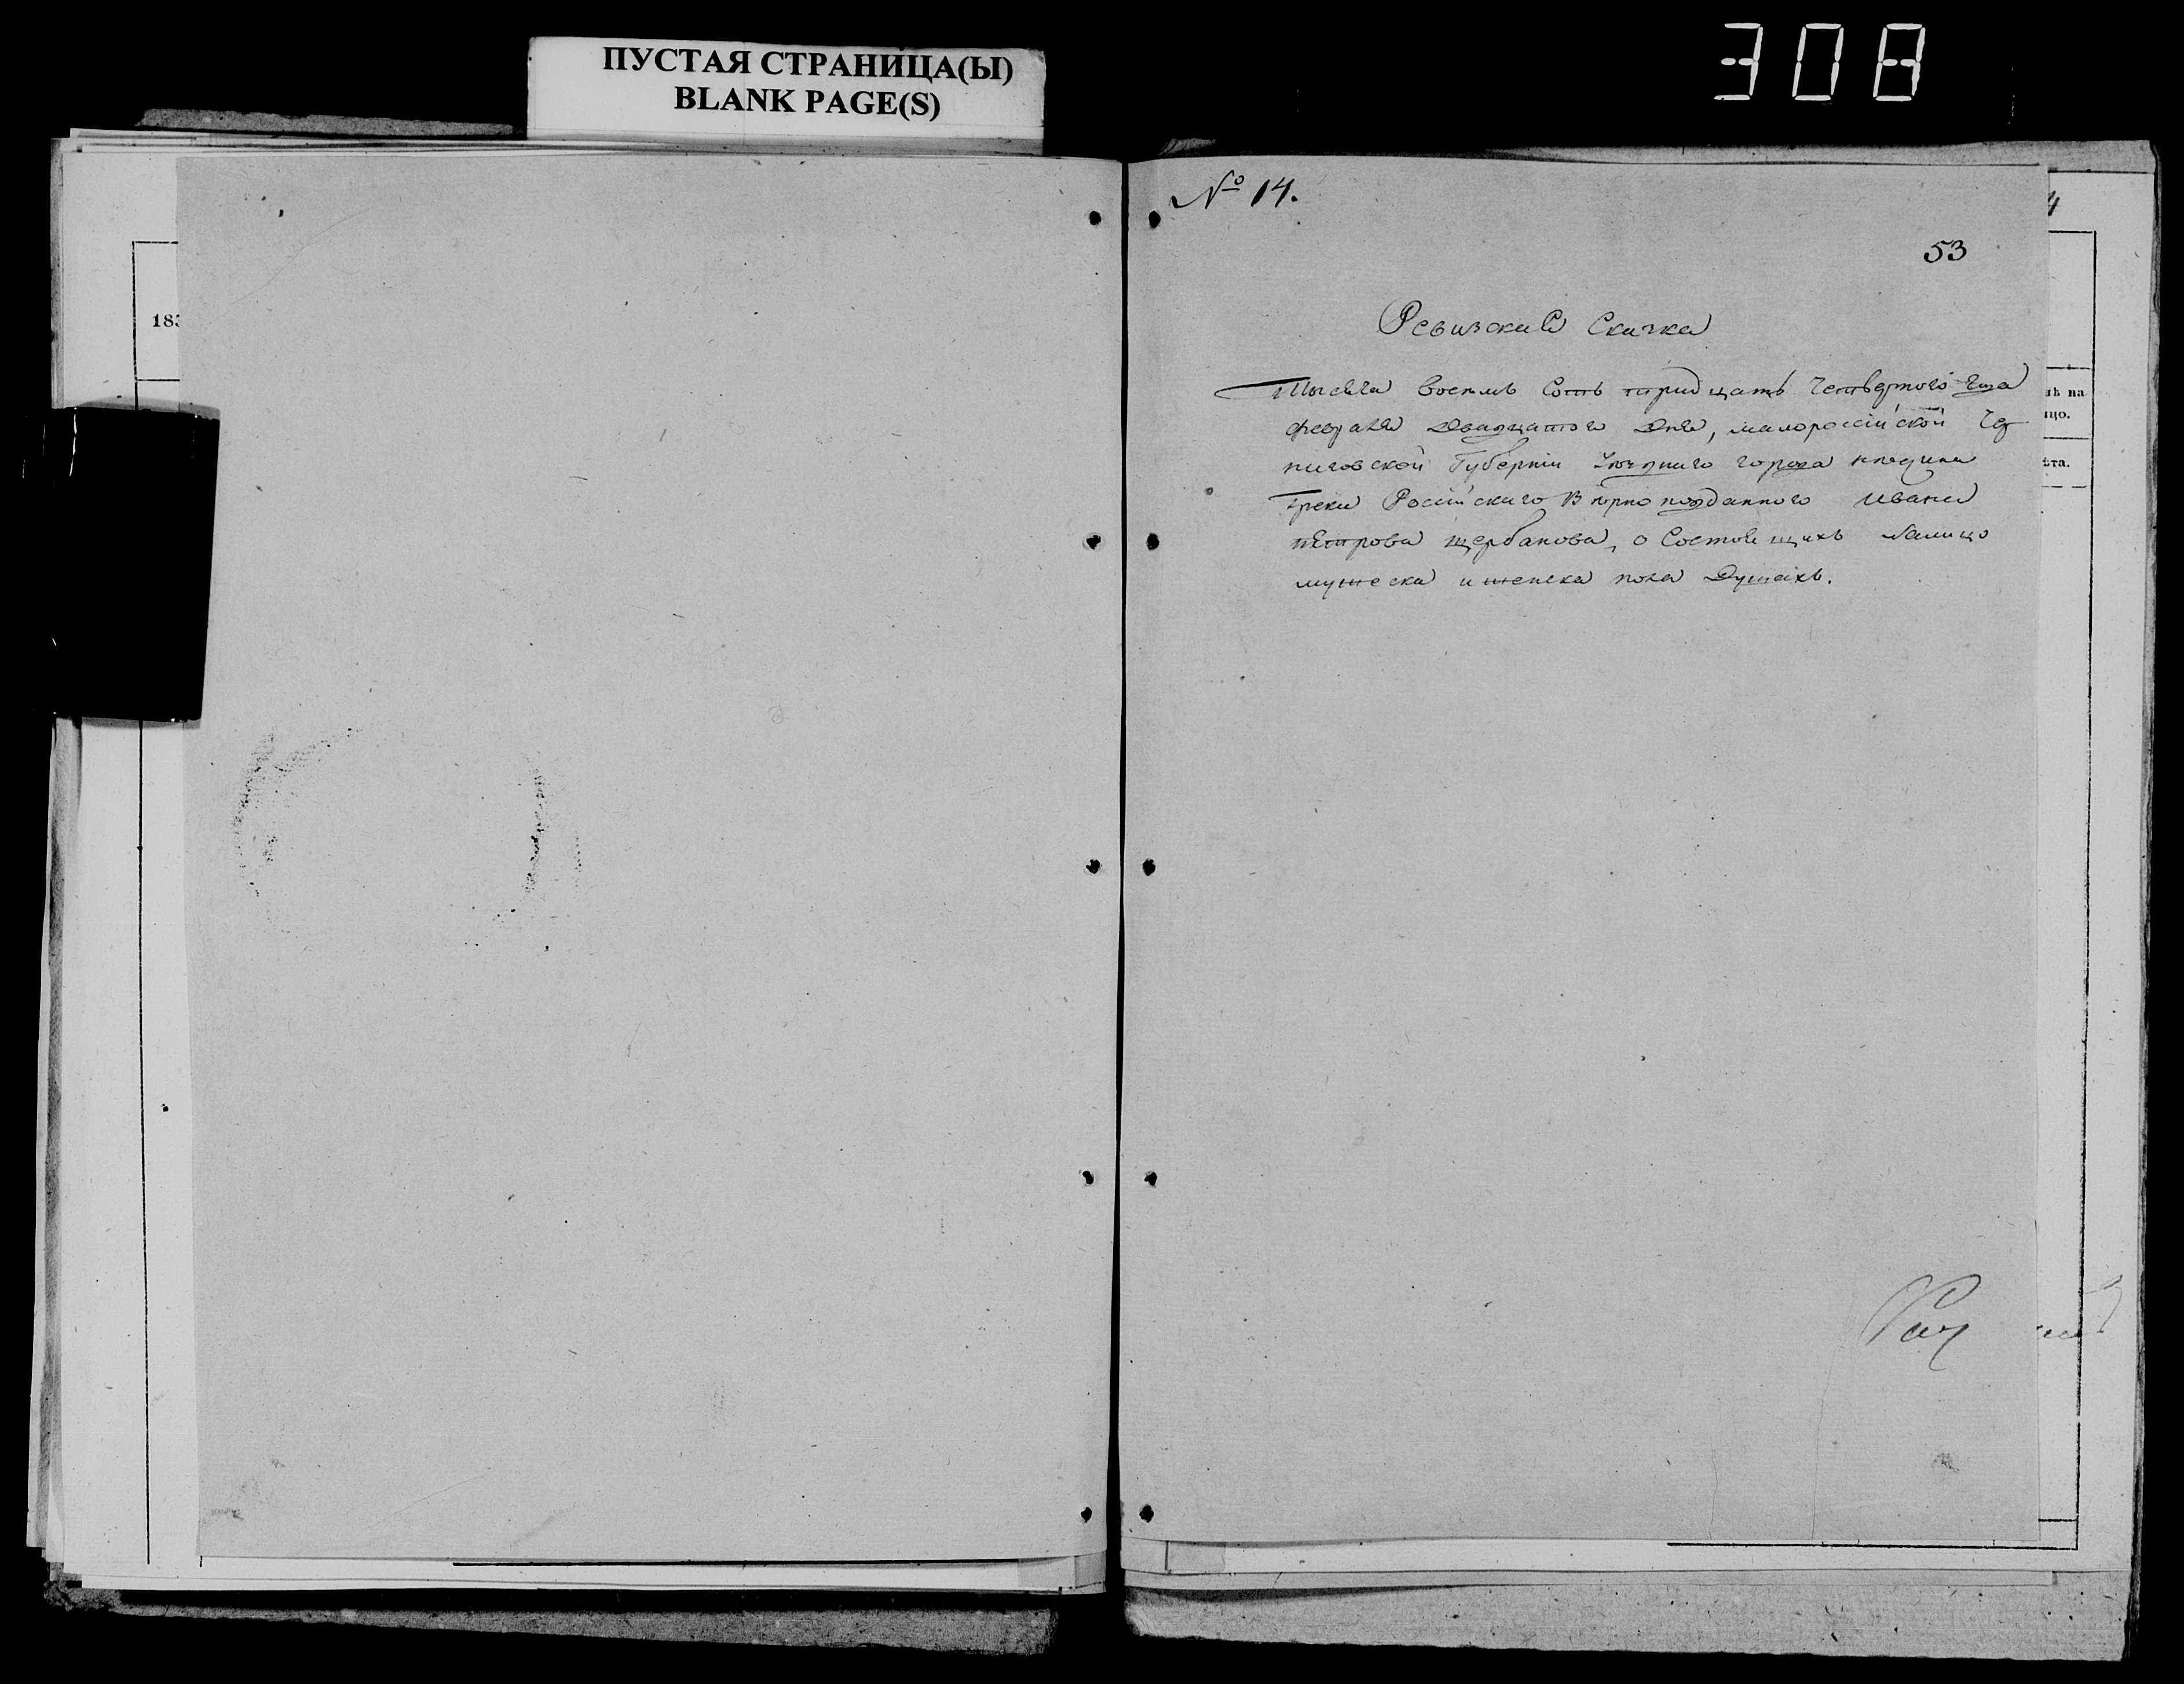 ПУСТАЯ СТРАНИЦА(Ы)
BLANK PAGE(S)
308
183
№ 14.
53
Ревизская Скаска
Тысяча восемь Сотъ тридцать Четвертого Года
февраля Двадцатого Дня, малороссійской Чер
ниговской Губерніи города нежина
Грека Російскаго Вѣрно подданного Ивана
петрова щербакова, о Состоящихъ Налицо
мужеска и женска пола Душахъ.
на
цо.
ѣта.